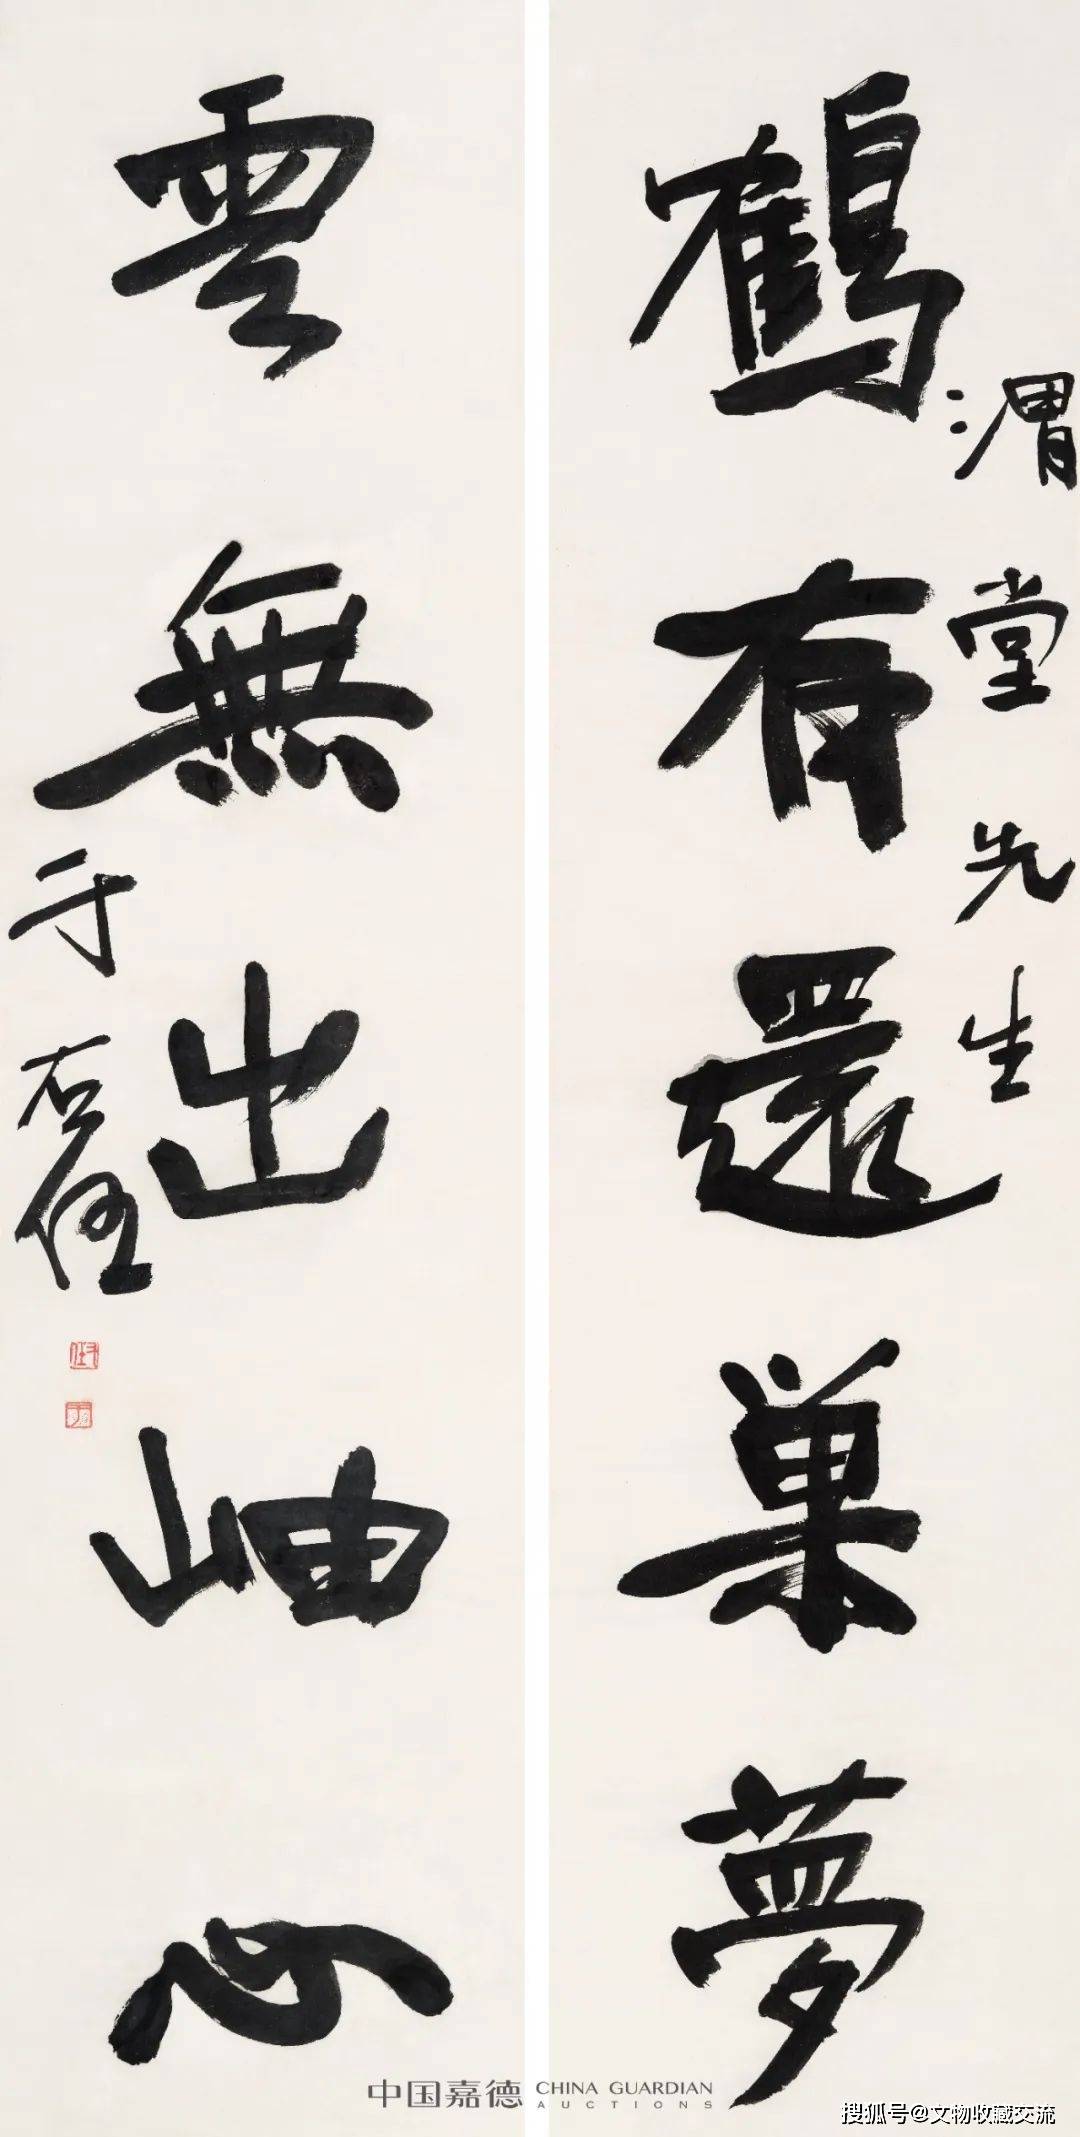 渭堂先生
鶴有還巢夢
雲無出岫心
于右任
中国嘉德 CHINA GUARDIAN
AUCTIONS
搜狐号@文物收藏交流